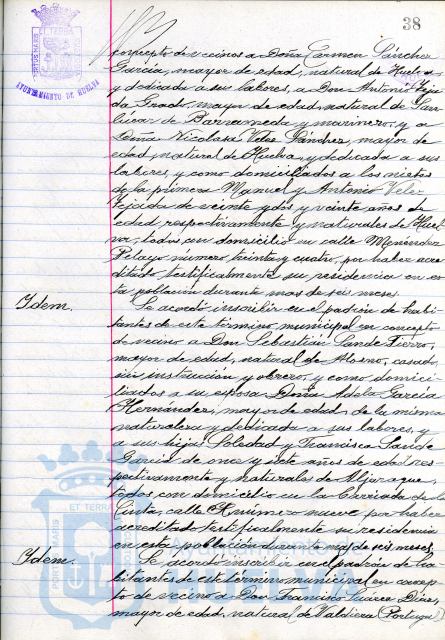 38
AYUNTAMIENTO DE HUELVA
concepto de vecinos a Doña Carmen Sánchez
García, mayor de edad, natural de Huelva
y dedicada a sus labores, a Don Antonio Teji
da Prado, mayor de edad, natural de San
lúcar de Barrameda y marinero, y a
Doña Nicolasa Velez Sánchez, mayor de
edad, natural de Huelva, y dedicada a sus
labores, y como domiciliados a los nietos
de la primera Manuel y Antonio Velez
Tejida de veinte y dos y veinte años de
edad respectivamente y naturales de Huel
va, todos con domicilio en calle Menéndez
Pelayo número treinta y cuatro, por haber acre
ditado testificalmente su residencia en es
ta población durante mas de seis meses.
Idem.
Se acordó inscribir en el padrón de habi
tantes de este término municipal en concepto
de vecino a Don Sebastián Sande Fierro,
mayor de edad, natural de Alosno, casado,
sin instrucción y obrero, y como domici
liados a su esposa Doña Adela García
Hernández, mayor de edad, de la misma
naturaleza y dedicada a sus labores, y
a sus hijas Soledad y Francisca Sande
García de once y siete años de edad res
pectivamente y naturales de Aljaraque,
todos con domicilio en la Barriada de la
Cinta, calle número nueve por haber
acreditado testificalmente su residencia
en esta población durante mas de seis meses.
Idem.
Se acordó inscribir en el padrón de ha
bitantes de este término municipal en concep
to de vecino a Don Francisco Suárez Díaz,
mayor de edad, natural de Valdiera (Portugal)